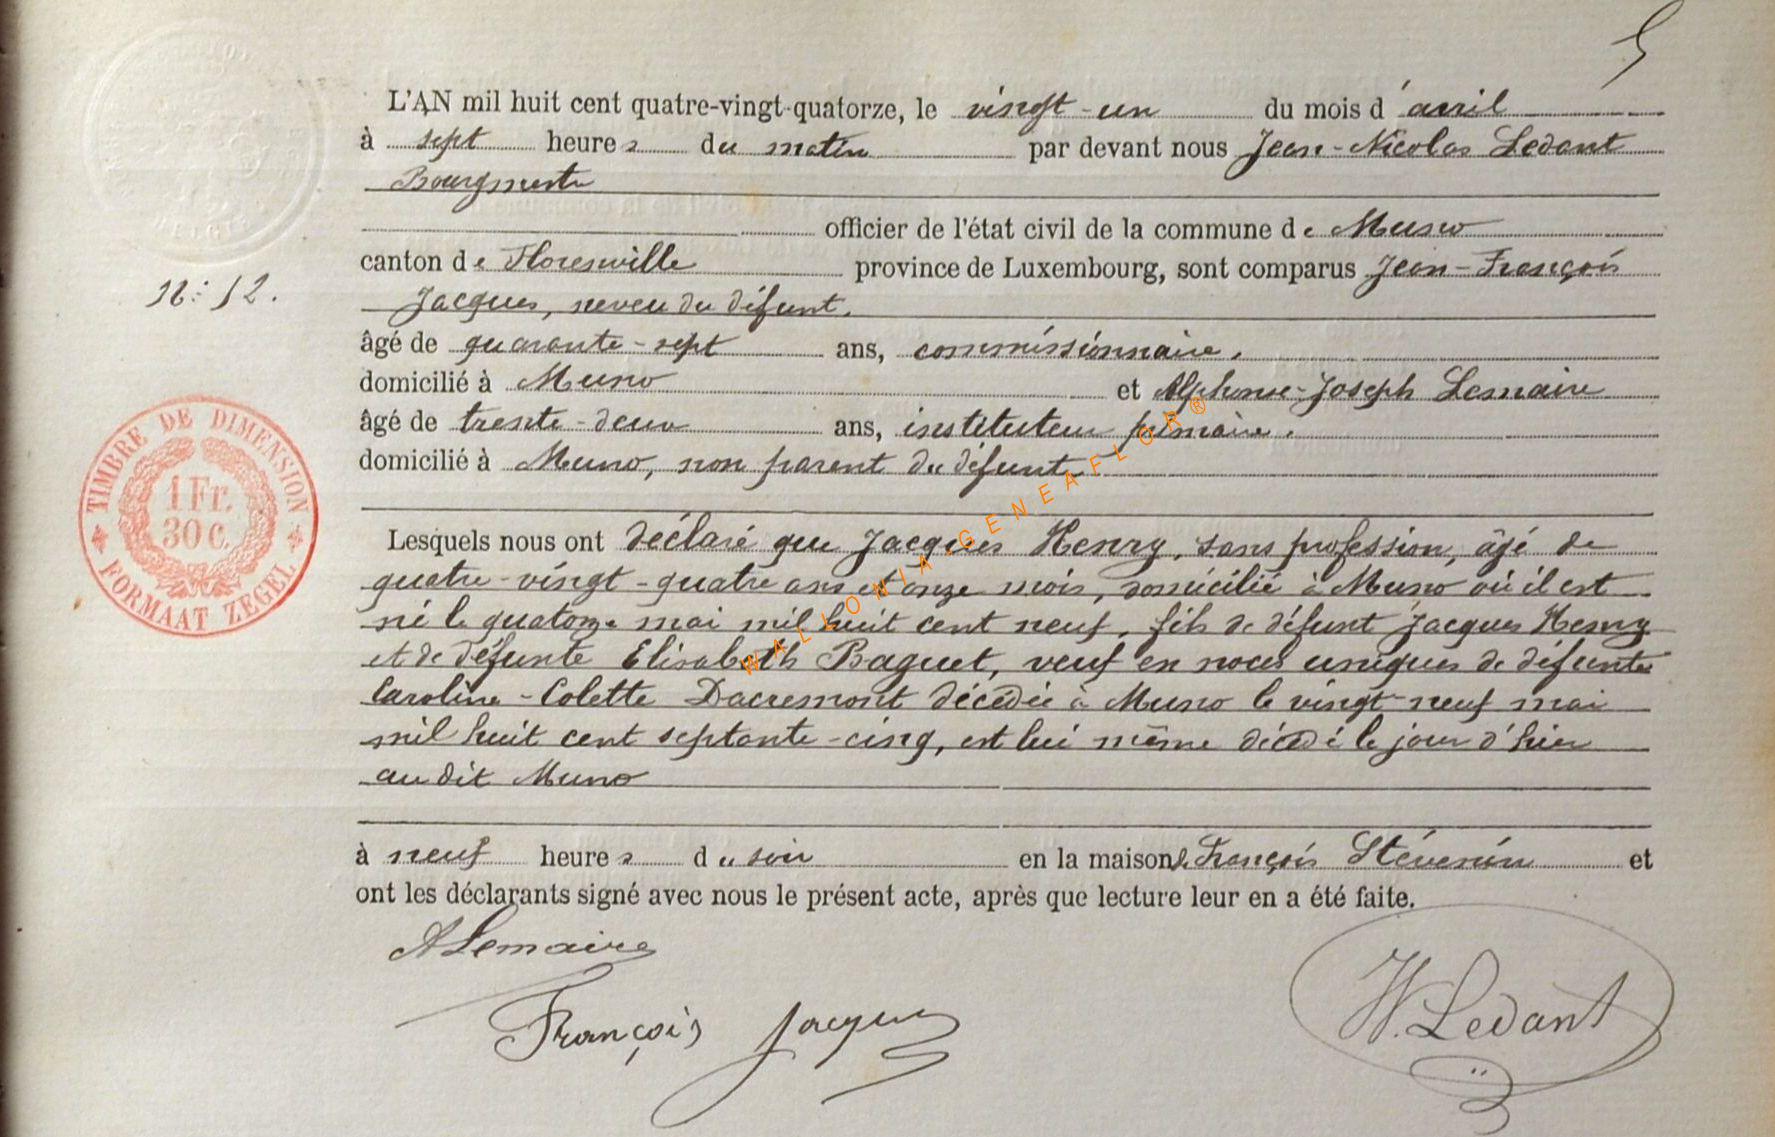 5
L'AN mil huit cent quatre-vingt-quatorze, le vingt-un du mois d'avril
à sept heures du matin par devant nous Jean-Nicolas Ledant
Bourgmestre
officier de l'état civil de la commune de Muno
canton de Florenville province de Luxembourg, sont comparus Jean-François
Jacques, neveu du défunt,
âgé de quarante-sept ans, commissionnaire,
domicilié à Muno et Alphonse-Joseph Lemaire
âgé de trente-deux ans, instituteur primaire,
domicilié à Muno, non parent du défunt
Lesquels nous ont déclaré que Jacques Henry, sans profession, âgé de
quatre-vingt-quatre ans et onze mois, domicilié à Muno où il est
né le quatorze mai mil huit cent neuf, fils de défunt Jacques Henry
et de défunte Elisabeth Baguet, veuf en noces uniques de défunte
Caroline-Colette Dacremont décédée à Muno le vingt-neuf mai
mil huit cent septante-cinq, est lui même décédé le jour d'hier
au dit Muno
à neuf heures du soir en la maison de François Stévenin et
ont les déclarants signé avec nous le présent acte, après que lecture leur en a été faite.
ALemaire
François Jacques
N. Ledant
12.
TIMBRE DE DIMENSION
1 Fr.
30 c.
FORMAAT ZEGEL
WALLONIA GENEAFLOR ®